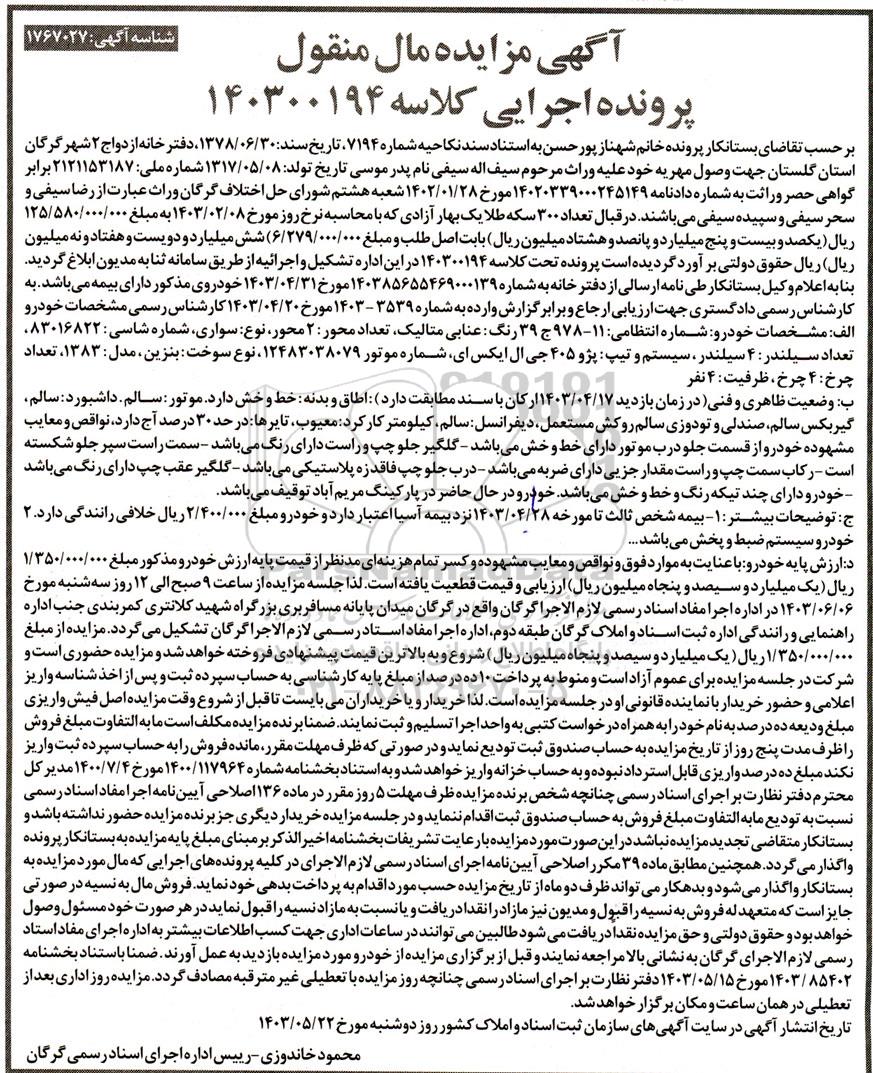 شناسه آگهی: ۱۷۶۷۰۲۷
آگهی مزایده مال منقول
پرونده اجرایی کلاسه ۱۴۰۳۰۰۱۹۴
بر حسب تقاضای بستانکار پرونده خانم شهناز پورحسن به استناد سند نکاحیه شماره ۷۱۹۴، تاریخ سند: ۱۳۷۸/۰۶/۳۰، دفترخانه ازدواج ۲ شهر گرگان
استان گلستان جهت وصول مهریه خود علیه وراث مرحوم سیف اله سیفی نام پدر موسی تاریخ تولد: ۱۳۱۷/۰۵/۰۸ شماره ملی: ۲۱۲۱۱۵۳۱۸۷ برابر
گواهی حصر وراثت به شماره دادنامه ۱۴۰۲۰۳۳۹۰۰۰۲۴۵۱۴۹ مورخ ۱۴۰۲/۰۱/۲۸ شعبه هشتم شورای حل اختلاف گرگان وراث عبارت از رضا سیفی و
سحر سیفی و سپیده سیفی می‌باشند. در قبال تعداد ۳۰۰ سکه طلا یک بهار آزادی که با محاسبه نرخ روز مورخ ۱۴۰۳/۰۲/۰۸ به مبلغ ۱۲۵/۵۸۰/۰۰۰/۰۰۰
ریال (یکصد و بیست و پنج میلیارد و پانصد و هشتاد میلیون ریال) بابت اصل طلب و مبلغ ۶/۲۷۹/۰۰۰/۰۰۰) شش میلیارد و دویست و هفتاد و نه میلیون
ریال) ریال حقوق دولتی بر آورد گردیده است پرونده تحت کلاسه ۱۴۰۳۰۰۱۹۴ در این اداره تشکیل و اجرائیه از طریق سامانه ثنا به مدیون ابلاغ گردید.
بنا به اعلام وکیل بستانکار طی نامه ارسالی از دفتر خانه به شماره ۱۴۰۳۸۵۶۵۵۴۶۹۰۰۰۱۳۹ مورخ ۱۴۰۳/۰۴/۳۱ خودروی مذکور دارای بیمه می‌باشد. به
کارشناس رسمی دادگستری جهت ارزیابی ارجاع و برابر گزارش وارده به شماره ۳۵۳۹-۱۴۰۳ مورخ ۱۴۰۳/۰۴/۲۰ کارشناس رسمی مشخصات خودرو
الف: مشخصات خودرو: شماره انتظامی: ۱۱-۹۷۸ج ۳۹ رنگ: عنابی متالیک، تعداد محور: ۲ محور، نوع: سواری، شماره شاسی: ۸۳۰۱۶۸۲۲،
تعداد سیلندر: ۴ سیلندر، سیستم و تیپ: پژو ۴۰۵ جی ال ایکس ای، شماره موتور ۱۲۴۸۳۰۳۸۰۷۹، نوع سوخت: بنزین، مدل: ۱۳۸۳، تعداد
چرخ: ۴ چرخ، ظرفیت: ۴ نفر
ب: وضعیت ظاهری و فنی( در زمان بازدید ۱۴۰۳/۰۴/۱۷ ارکان با سند مطابقت دارد): اطاق و بدنه: خط و خش دارد. موتور: سالم. داشبورد: سالم،
گیربکس سالم، صندلی و تودوزی سالم روکش مستعمل، دیفرانسل: سالم، کیلومتر کارکرد: معیوب، تایرها: در حد ۳۰ درصد آج دارد، نواقص و معایب
مشهوده خودرو از قسمت جلو درب موتور دارای خط و خش می‌باشد - گلگیر جلو چپ و راست دارای رنگ می‌باشد - سمت راست سپر جلو شکسته
است - رکاب سمت چپ و راست مقدار جزیی دارای ضربه می‌باشد - درب جلو چپ فاقد زه پلاستیکی می‌باشد - گلگیر عقب چپ دارای رنگ می‌باشد
- خودرو دارای چند تیکه رنگ و خط و خش می‌باشد. خودرو در حال حاضر در پارکینگ مریم آباد توقیف می‌باشد.
ج: توضیحات بیشتر: ۱- بیمه شخص ثالث تا مورخه ۱۴۰۳/۰۴/۲۸ نزد بیمه آسیا اعتبار دارد و خودرو مبلغ ۲/۴۰۰/۰۰۰ ریال خلافی رانندگی دارد. ۲
خودرو سیستم ضبط و پخش می‌باشد...
د: ارزش پایه خودرو: با عنایت به موارد فوق و نواقص و معایب مشهوده و کسر تمام هزینه‌ای مدنظر از قیمت پایه ارزش خودرو مذکور مبلغ ۱/۳۵۰/۰۰۰/۰۰۰
ریال (یک میلیارد و سیصد و پنجاه میلیون ریال) ارزیابی و قیمت قطعیت یافته است. لذا جلسه مزایده از ساعت ۹ صبح الی ۱۲ روز سه‌شنبه مورخ
۱۴۰۳/۰۶/۰۶ در اداره اجرا مفاد اسناد رسمی لازم الاجرا گرگان واقع در گرگان میدان پایانه مسافربری بزرگراه شهید کلانتری کمربندی جنب اداره
راهنمایی و رانندگی اداره ثبت اسناد و املاک گرگان طبقه دوم، اداره اجرا مفاد اسناد رسمی لازم الاجرا گرگان تشکیل می‌گردد. مزایده از مبلغ
۱/۳۵۰/۰۰۰/۰۰۰ ریال (یک میلیارد و سیصد و پنجاه میلیون ریال) شروع و به بالاترین قیمت پیشنهادی فروخته خواهد شد و مزایده حضوری است و
شرکت در جلسه مزایده برای عموم آزاد است و منوط به پرداخت ۱۰ ده درصد از مبلغ پایه کارشناسی به حساب سپرده ثبت و پس از اخذ شناسه واریز
اعلامی و حضور خریدار با نماینده قانونی او در جلسه مزایده است. لذا خریدار و یا خریداران می‌بایست تا قبل از شروع وقت مزایده اصل فیش واریزی
مبلغ ودیعه ده درصد به نام خود را به همراه درخواست کتبی به واحد اجرا تسلیم و ثبت نمایند. ضمنا برنده مزایده مکلف است مابه التفاوت مبلغ فروش
را ظرف مدت پنج روز از تاریخ مزایده به حساب صندوق ثبت تودیع نماید و در صورتی که ظرف مهلت مقرر، مانده فروش را به حساب سپرده ثبت واریز
نکند مبلغ ده درصد واریزی قابل استرداد نبوده و به حساب خزانه واریز خواهد شد و به استناد بخشنامه شماره ۱۴۰۰/۱۱۷۹۶۴ مورخ ۱۴۰۰/۷/۴ مدیر کل
محترم دفتر نظارت بر اجرای اسناد رسمی چنانچه شخص برنده مزایده ظرف مهلت ۵ روز مقرر در ماده ۱۳۶ اصلاحی آیین‌نامه اجرا مفاد اسناد رسمی
نسبت به تودیع مابه التفاوت مبلغ فروش به حساب صندوق ثبت اقدام ننماید و در جلسه مزایده خریدار دیگری جز برنده مزایده حضور نداشته باشد و
بستانکار متقاضی تجدید مزایده نباشد در این صورت مورد مزایده با رعایت تشریفات بخشنامه اخیرالذکر بر مبنای مبلغ پایه مزایده به بستانکار پرونده
واگذار می‌گردد. همچنین مطابق ماده ۳۹ مکرر اصلاحی آیین‌نامه اجرای اسناد رسمی لازم الاجرای در کلیه پرونده‌های اجرایی که مال مورد مزایده به
بستانکار واگذار می‌شود و بدهکار می‌تواند ظرف دو ماه از تاریخ مزایده حسب مورد اقدام به پرداخت بدهی خود نماید. فروش مال به نسیه در صورتی
جایز است که متعهدله فروش به نسیه را قبول و مدیون نیز مازاد را نقدا دریافت و یا نسبت به مازاد نسیه را قبول نماید در هر صورت خود مسئول وصول
خواهد بود و حقوق دولتی و حق مزایده نقداً دریافت می‌شود طالبین می‌توانند در ساعات اداری جهت کسب اطلاعات بیشتر به اداره اجرای مفاد اسناد
رسمی لازم الاجرای گرگان به نشانی بالا مراجعه نمایند و قبل از برگزاری مزایده از خودرو مورد مزایده بازدید به عمل آورند. ضمنا با استناد بخشنامه
۱۴۰۳/۸۵۴۰۲ مورخ ۱۴۰۳/۰۵/۱۵ دفتر نظارت بر اجرای اسناد رسمی چنانچه روز مزایده با تعطیلی غیر مترقبه مصادف گردد. مزایده روز اداری بعد از
تعطیلی در همان ساعت و مکان برگزار خواهد شد.
تاریخ انتشار آگهی در سایت آگهی‌های سازمان ثبت اسناد و املاک کشور روز دوشنبه مورخ ۱۴۰۳/۰۵/۲۲
محمود خاندوزی - رییس اداره اجرای اسناد رسمی گرگان